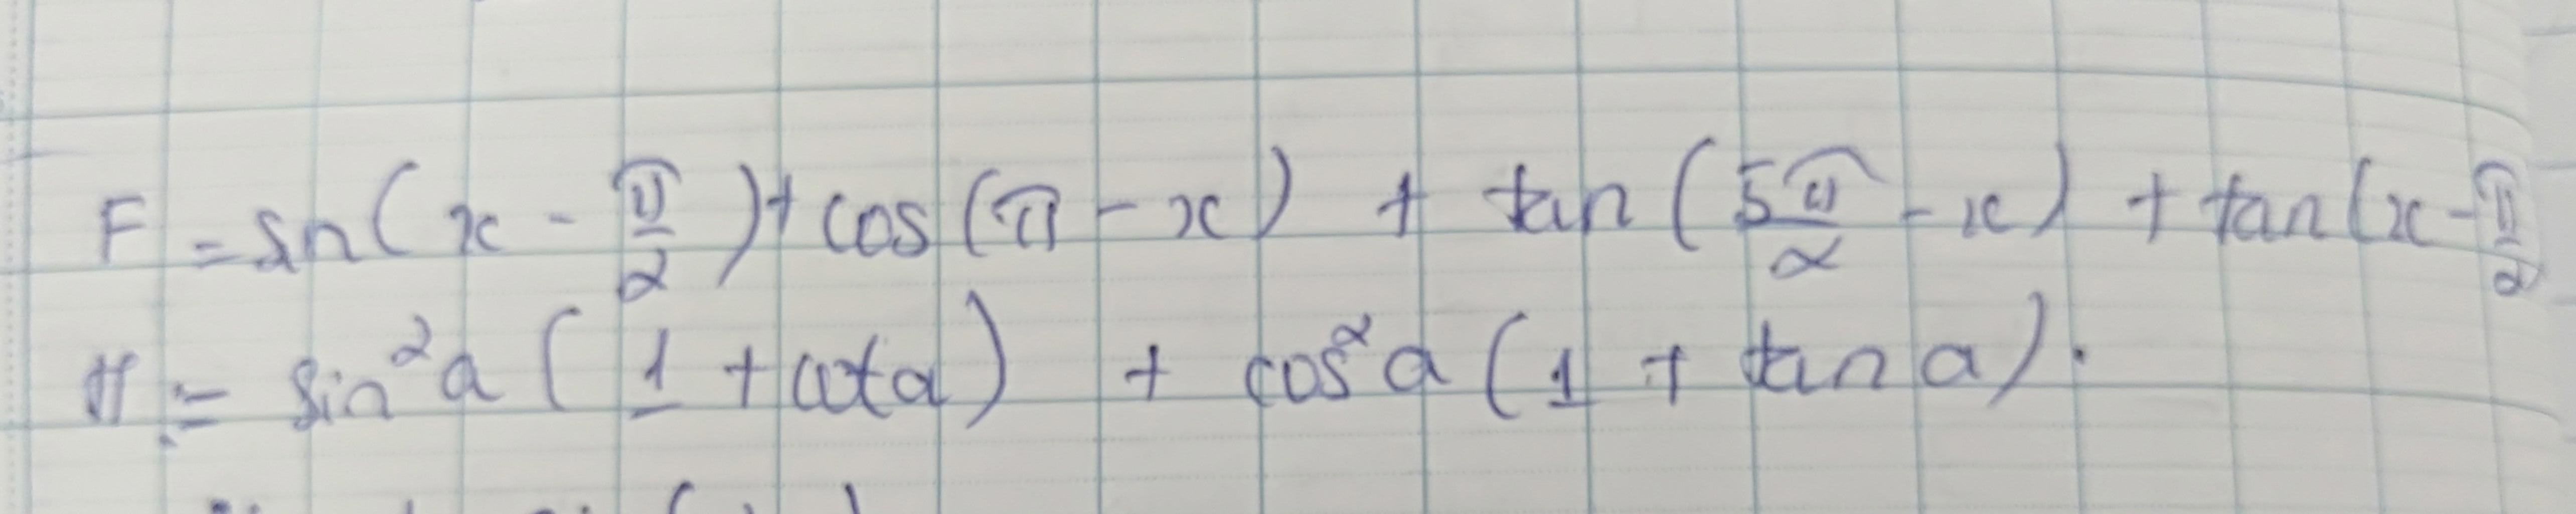 F = sin(x - π/2) + cos(π - x) + tan(5π/2 - x) + tan(x - π/2
H = sin²a (1 + cota) + cos²a (1 + tan a).